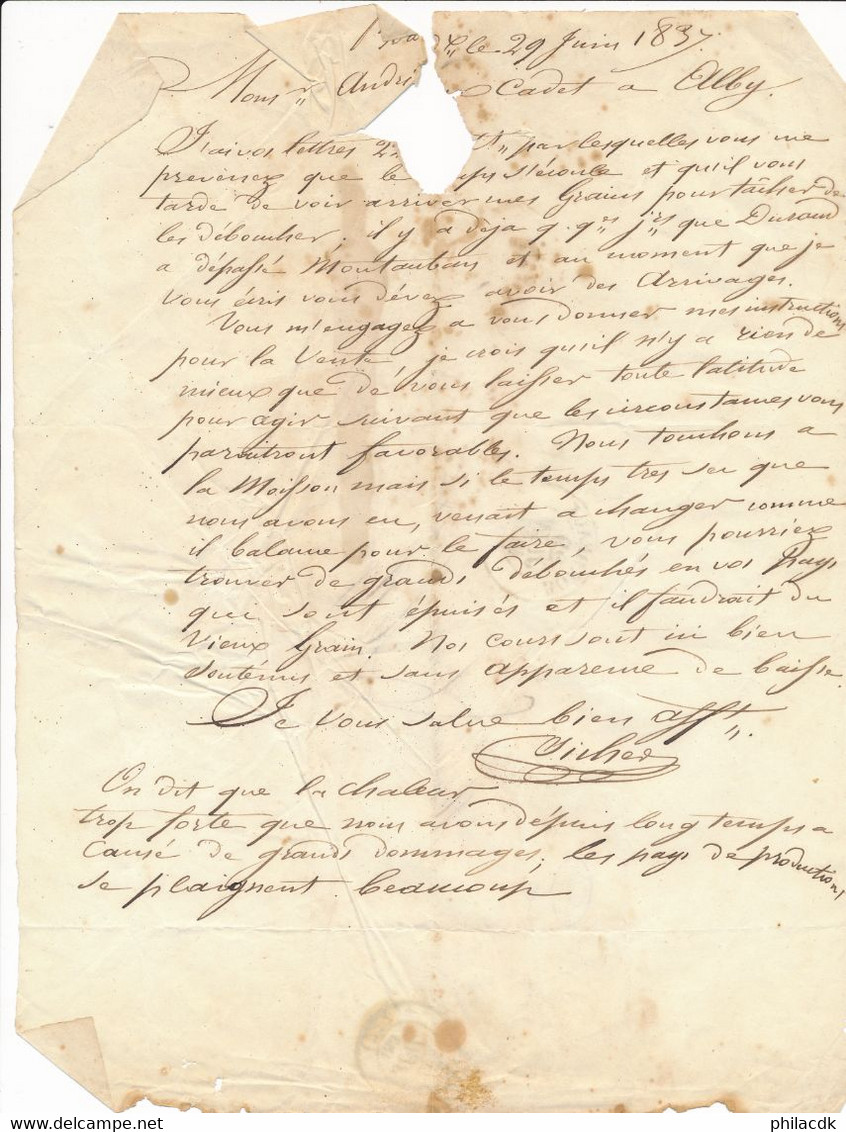 le 29 Juin 1837.
Monsr André Cadet a Alby.
J'ai vos lettres par lesquelles vous me
prevenez que le s'écoule et qu'il vous
tarde de voir arriver mes Grains pour tâcher de
les déboucher, il y a déja q. qes jrs que Durand
a dépassé Montauban et au moment que je
vous écris vous dévez avoir des Arrivages.
Vous m'engagez a vous donner mes instructions
pour la Vente, je crois qu'il n'y a rien de
mieux que de vous laisser toute latitude
pour agir suivant que les circonstances vous
paraitront favorables. Nous touchons a
la Moisson mais si le temps tres sec que
nous avons eu, venait a changer comme
il balance pour le faire, vous pourriez
trouver de grands débouchés en vos Pays
qui sont épuisés et il faudrait du
Vieux Grain. Nos cours sont ici bien
soutenus et sans apparence de baisse.
Je vous salue bien afft.
On dit que la chaleur
trop forte que nous avons dépuis long temps a
causé de grands dommages, les pays de productions
se plaignent beaucoup
philacdk